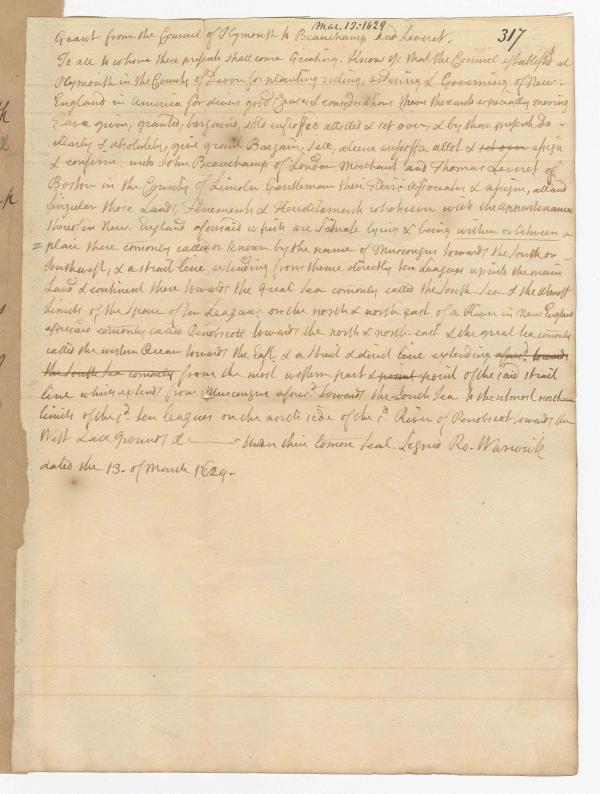 Mar. 13. 1629
317
Grant from the Council of Plymouth to Beauchamp and Leveret.
To all to whom these presents shall come Greeting. Know Ye that the Council established at
Plymouth in the County of Devon for planting ruling, ordering & Governing of New
England in America for divers good Causes & considerations them thereunto especially moving
Have given, granted, bargained, sold enfeoffed allotted & set over, & by these presents do
clearly & absolutely, give grant Bargain, Sell, aliene enfeoffe allot & set over assign
& confirm unto John Beauchamp of London Merchant and Thomas Leveret of
Boston in the County of Lincoln Gentleman their Heirs associates & assigns, all and
Singular those Lands, Tenements & Hereditaments whatsoever with the appurtenances
thereof in New England aforesaid which are Situate lying & being within or between a
= place there comonly called or known by the name of Muscongus towards the South or
Southwest, & a strait line extending from thence directly ten Leagues up into the main
Land & continent there towards the Great Sea comonly called the South Sea & the utmost
Limits of the Space of ten Leagues on the north & north east of a River in New England
aforesaid comonly called Penobscott towards the north & north-east & the great sea comonly
called the western Ocean towards the East & a strait & direct line extending afores.d towards
the South Sea comonly from the most western part & point of the said strait
line which extends from Muscongus afores.d towards the South Sea to the utmost northern
limits of the s.d ten leagues on the north side of the s.d River of Penobscot towards the
West Land Grounds &c ——— Under their comon Seal Signed Ro. Warwick
dated the 13. of March 1629.